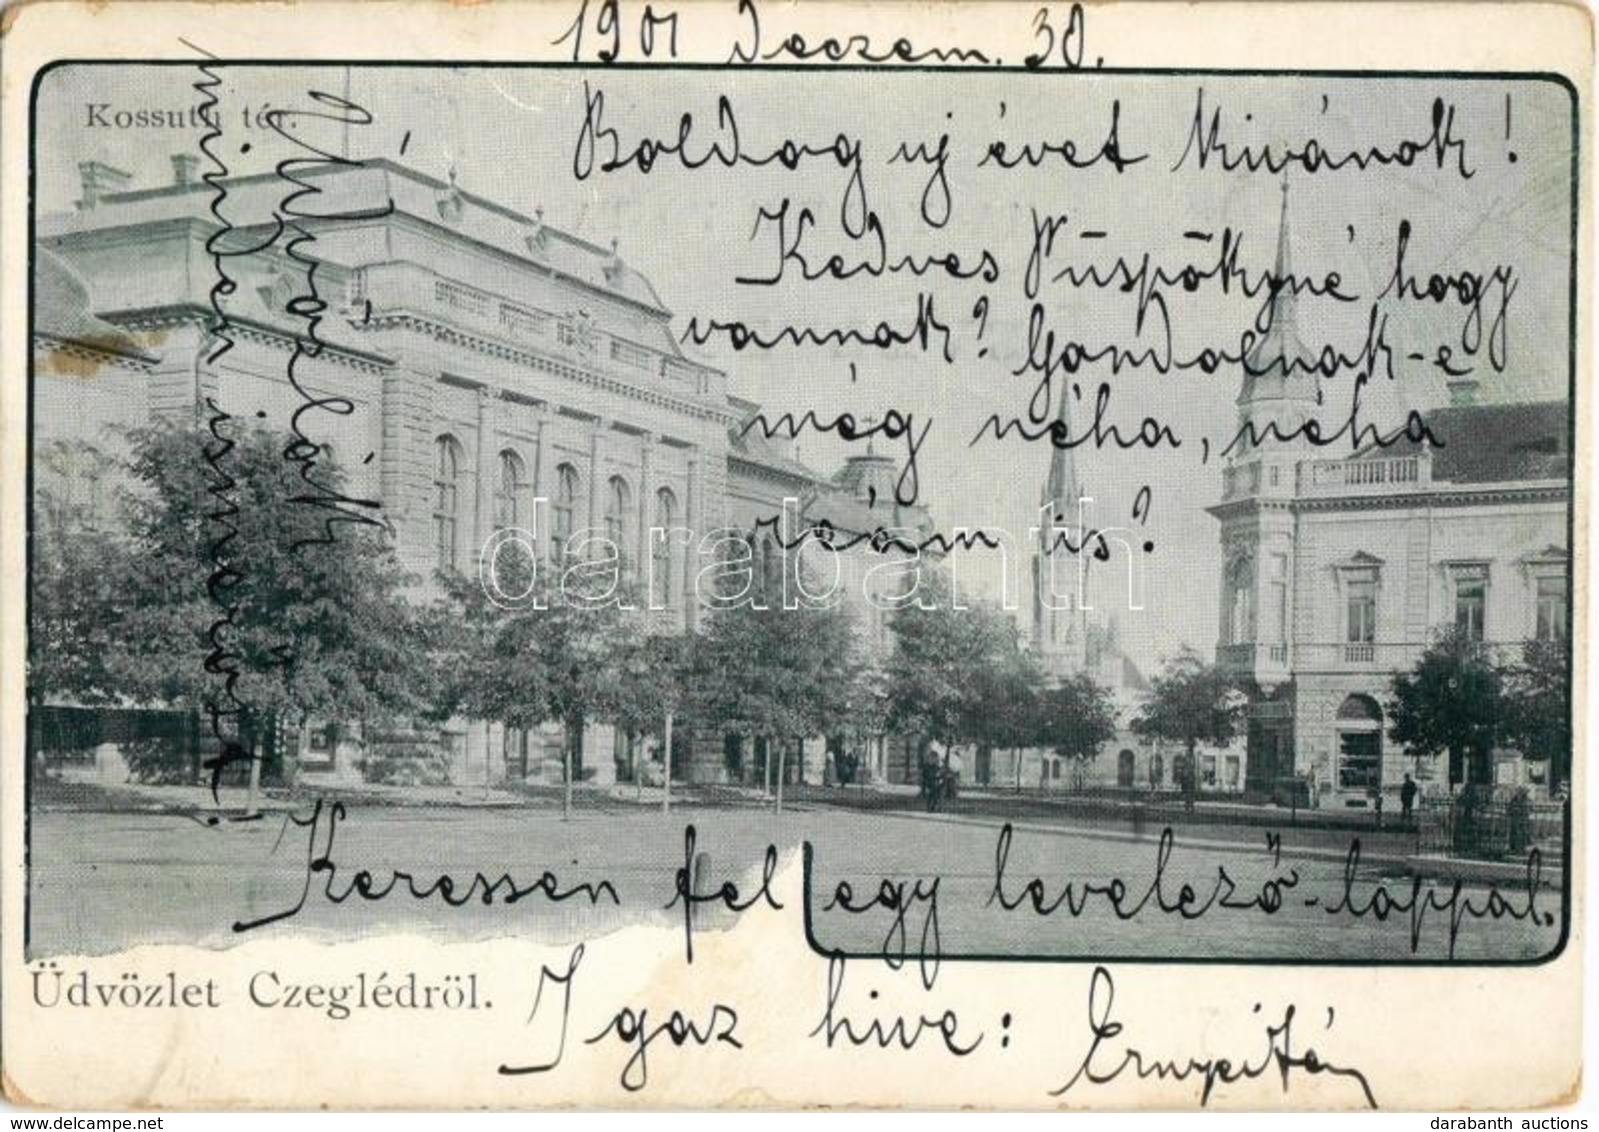 1901 Deczem. 30.
Kossuth tér.
Boldog uj évet kivánok!
Kedves Püspökyné hogy
vannak? Gondolnak-e
még néha, néha
reám is?
Üdvözlét
minden ismerőst.
darabanth
Keressen fel egy levelező-lappal.
Üdvözlet Czeglédröl.
Igaz hive:
darabanth auctions
delcampe.net